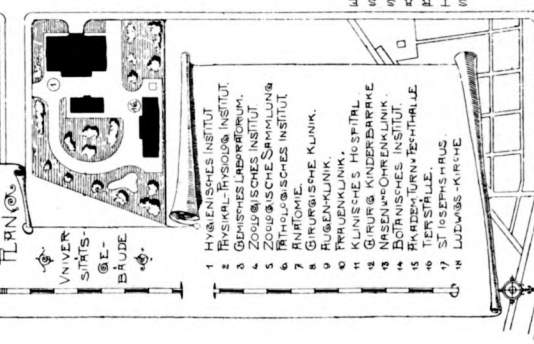 PLAN
VNIVER-
SITÄTS-
GE-
BÄUDE
1 HYGIENISCHES INSTITUT
2 PHYSIKAL-PHYSIOLOG INSTITUT.
3 CHEMISCHES LABORATORIUM.
4 ZOOLOGISCHES INSTITUT.
5 ZOOLOGISCHE SAMMLUNG
6 PATHOLOGISCHES INSTITUT
7 ANATOMIE.
8 CIRURGISCHE KLINIK.
9 AUGEN-KLINIK.
10 FRAUENKLINIK.
11 KLINISCHES HOSPITAL
12 CIRURG KINDERBARAKE
13 NASEN U-OHRENKLINIK.
14 BOTANISCHES INSTITUT.
15 AKADEM. TURN U FECHTHALLE
16 TIERSTÄLLE.
17 ST JOSEPHSHAUS.
18 LUDWIGS-KIRCHE
1